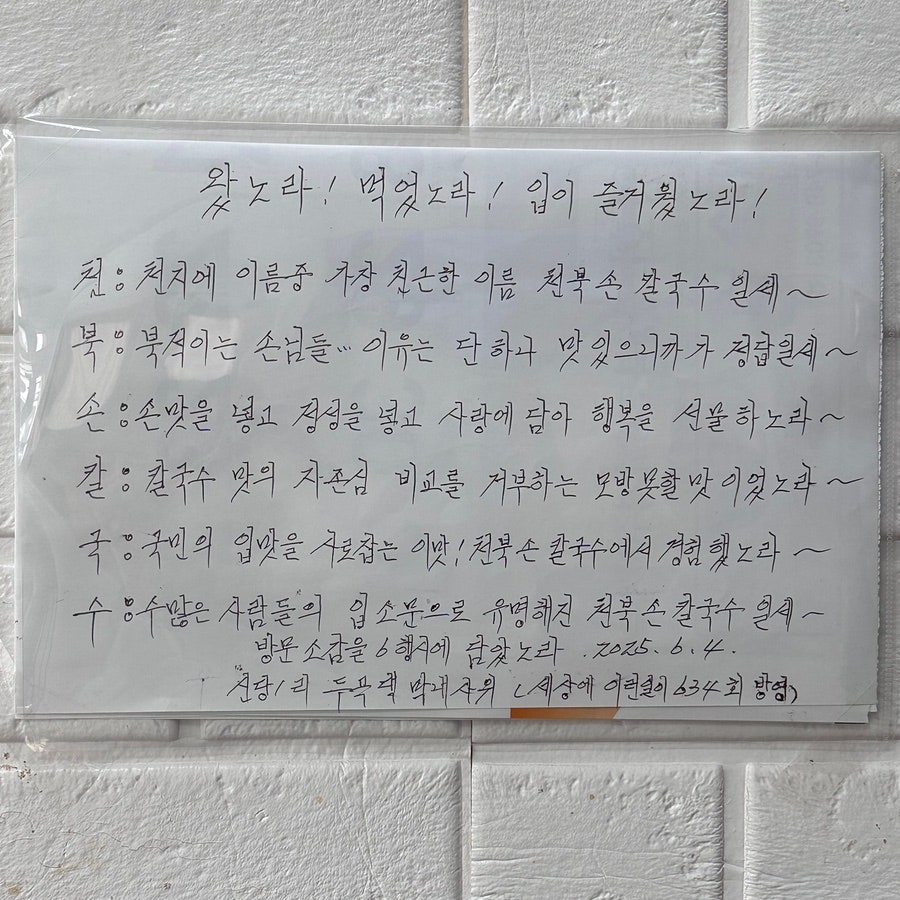 왔노라! 먹었노라! 입이 즐거웠노라!
천: 천지에 이름중 가장 친근한 이름 천북손 칼국수 일세~
북: 북적이는 손님들... 이유는 단하나 맛있으니까가 정답일세~
손: 손맛을 넣고 정성을 넣고 사랑에 담아 행복을 선물하노라~
칼: 칼국수 맛의 자존심 비교를 거부하는 모방못할맛이었노라~
국: 국민의 입맛을 사로잡는 이맛! 천북손 칼국수에서 경험했노라~
수: 수많은 사람들의 입소문으로 유명해진 천북손칼국수 일세~
방문소감을 6행시에 담았노라. 2025.6.4.
신당1리 막내사위 (세상에 이런일이 634회 방영)